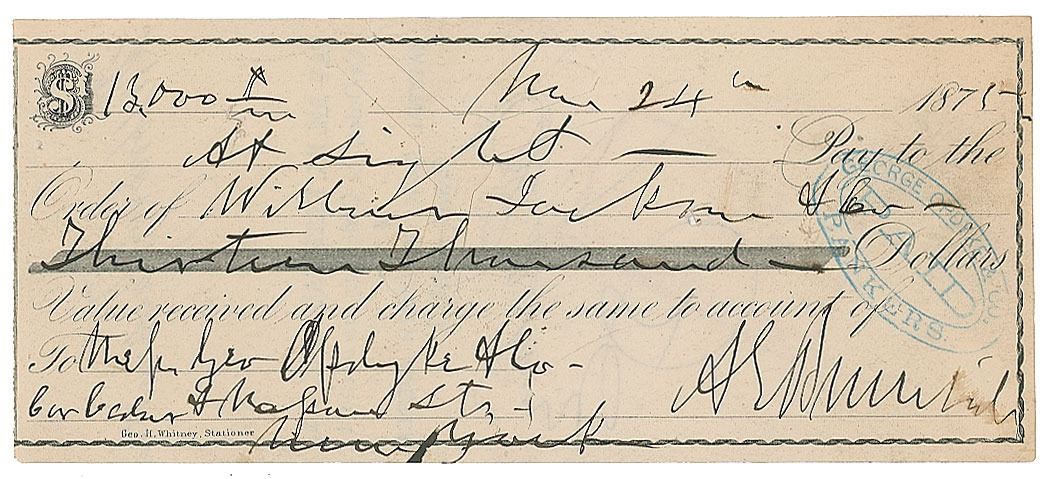 $ 13,000 Nov 24th 1875
At sight — Pay to the
Order of William Jackson & Co —
Thirteen Thousand — Dollars
Value received and charge the same to account of
To Geo Opdyke & Co —
Cor Cedar & Nassau Sts
New York
Geo. H. Whitney, Stationer
GEORGE OPDYKE & CO.
PAID
BANKERS.